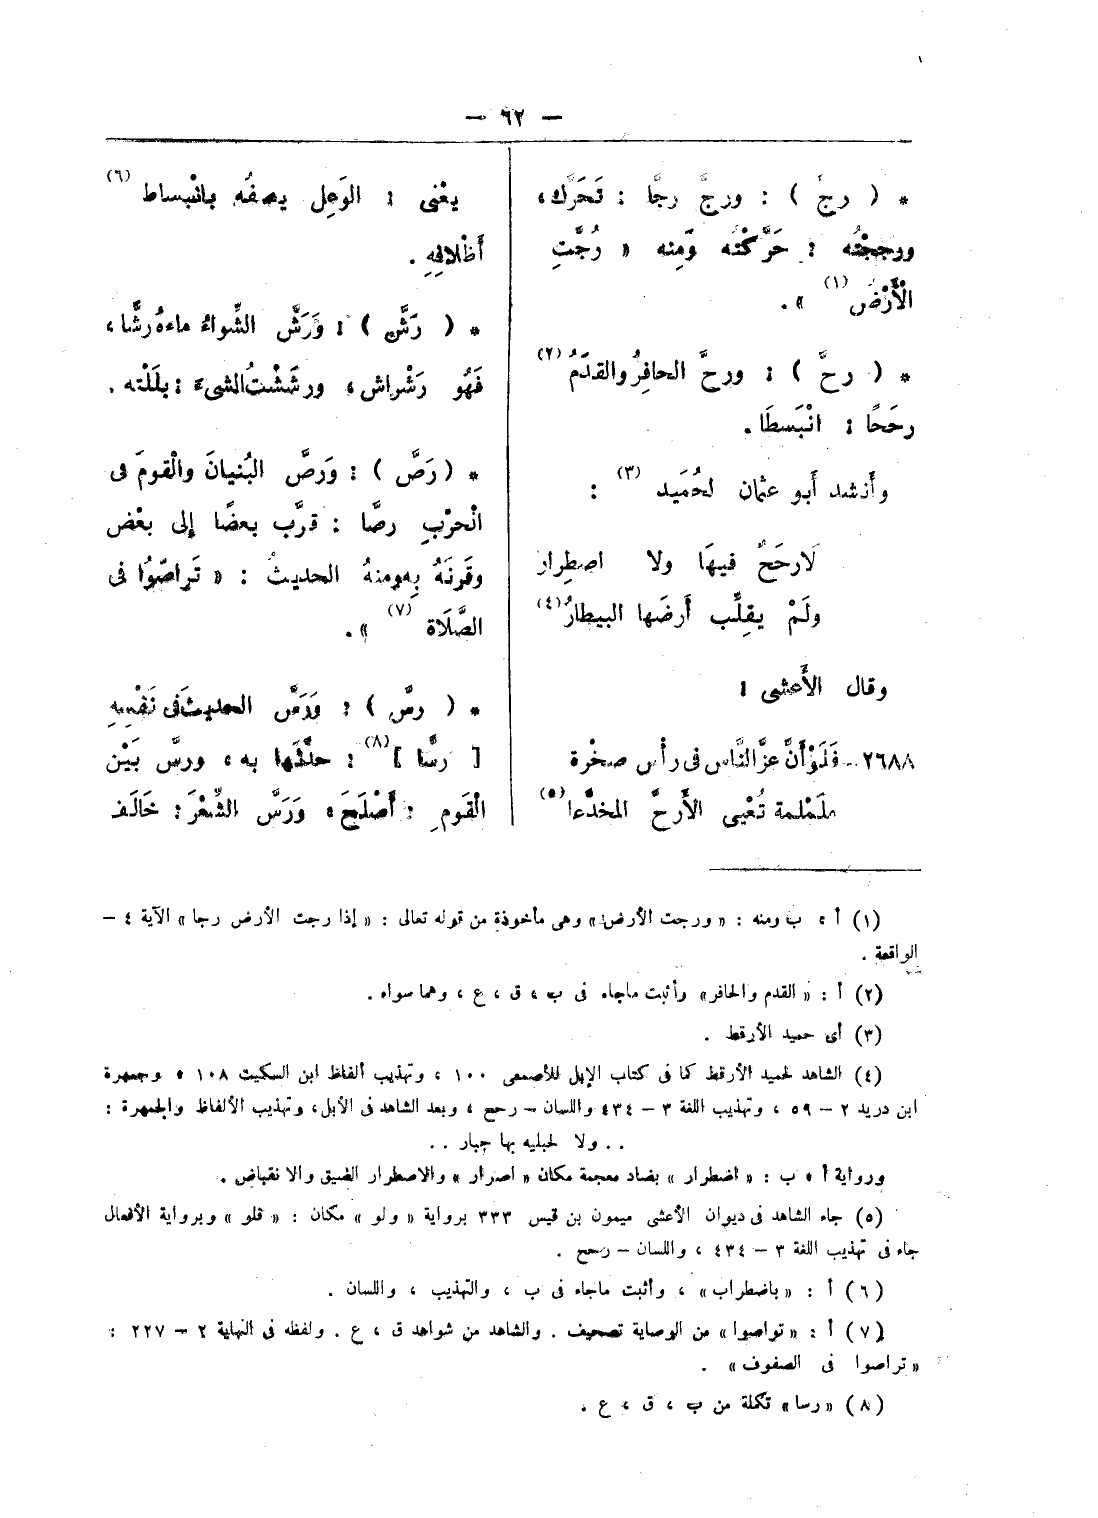 — ٦٢ —
* ( رجَّ ) : ورجَّ رجًّا : تَحَرَّك،
ورججْتُه : حَرَّكْتُه وَمِنه « رُجَّتِ
الْأَرْضُ (١) ».
* ( رحَّ ) : ورحَّ الحافِرُ والقدَمُ (٢)
رحَحًا : انْبَسطَا.
وأَنشد أَبو عثمان لحُمَيد (٣) :
لَارحَحٌ فيهَا ولا اصطِرار
ولَمْ يقلِّب أَرضَها البيطارُ (٤)
وقال الأَعشى :
٢٦٨٨ – فَلَوْأَنَّ عزَّ النَّاس فى رأْس صخْرة
ملَمْلمة تُعْيى الأَرحَّ المخدَّعا (٥)
يعْنى : الوَعِل يصفُه بانْبساط (٦)
أَظْلافِهِ .
* ( رَشَّ ) : وَرَشَّ الشِّواءُ ماءهُ رشًّا ،
فَهُو رَشْراش ، ورشَشْتُ الشىءَ : بلَلْته .
* ( رَصَّ ) : وَرصَّ البُنيانَ والْقومَ فى
الْحرْبِ رصًّا : قرَّب بعضًا إلى بعْض
وقَرنَهُ بِهِ ومنهُ الحديثُ : « تَراصّوُا فى
الصَّلَاة (٧) ».
* ( رسَّ ) : وَرَسَّ الحديثَ فى نَفْسِهِ
[ رسًّا ] (٨) : حدَّثَها به ، ورسَّ بَيْن
الْقَومِ : أَصْلَحَ ، وَرَسَّ الشِّعْرَ : خَالَف
(١) أ ، ب ومنه : « ورجت الأرض » وهى مأخوذة من قوله تعالى : « إذا رجت الأرض رجا » الآية ٤ –
الواقعة .
(٢) أ : « القدم والحافر » وأثبت ماجاء فى ب ، ق ، ع ، وهما سواء .
(٣) أى حميد الأرقط .
(٤) الشاهد لحميد الأرقط كما فى كتاب الإبل للأصمعى ١٠٠ ، وتهذيب ألفاظ ابن السكيت ١٠٨ ، وجمهرة
ابن دريد ٢ – ٥٩ ، وتهذيب اللغة ٣ – ٤٣٤ واللسان – رحح ، وبعد الشاهد فى الأبل، وتهذيب الألفاظ والجمهرة :
. . ولا لحبليه بها حبار . .
ورواية أ ، ب : « اضطرار » بضاد معجمة مكان « اصرار » والاصطرار الضيق والانقباض .
(٥) جاء الشاهد فى ديوان الأعشى ميمون بن قيس ٣٣٣ برواية « ولو » مكان : « فلو » وبرواية الأفعال
جاء فى تهذيب اللغة ٣ – ٤٣٤ ، واللسان – رحح .
(٦) أ : « باضطراب » ، وأثبت ماجاء فى ب ، والتهذيب ، واللسان .
(٧) أ : « تواصوا » من الوصاية تصحيف . والشاهد من شواهد ق ، ع . ولفظه فى النهاية ٢ – ٢٢٧ :
« تراصوا فى الصفوف » .
(٨) « رسا » تكملة من ب ، ق ، ع .